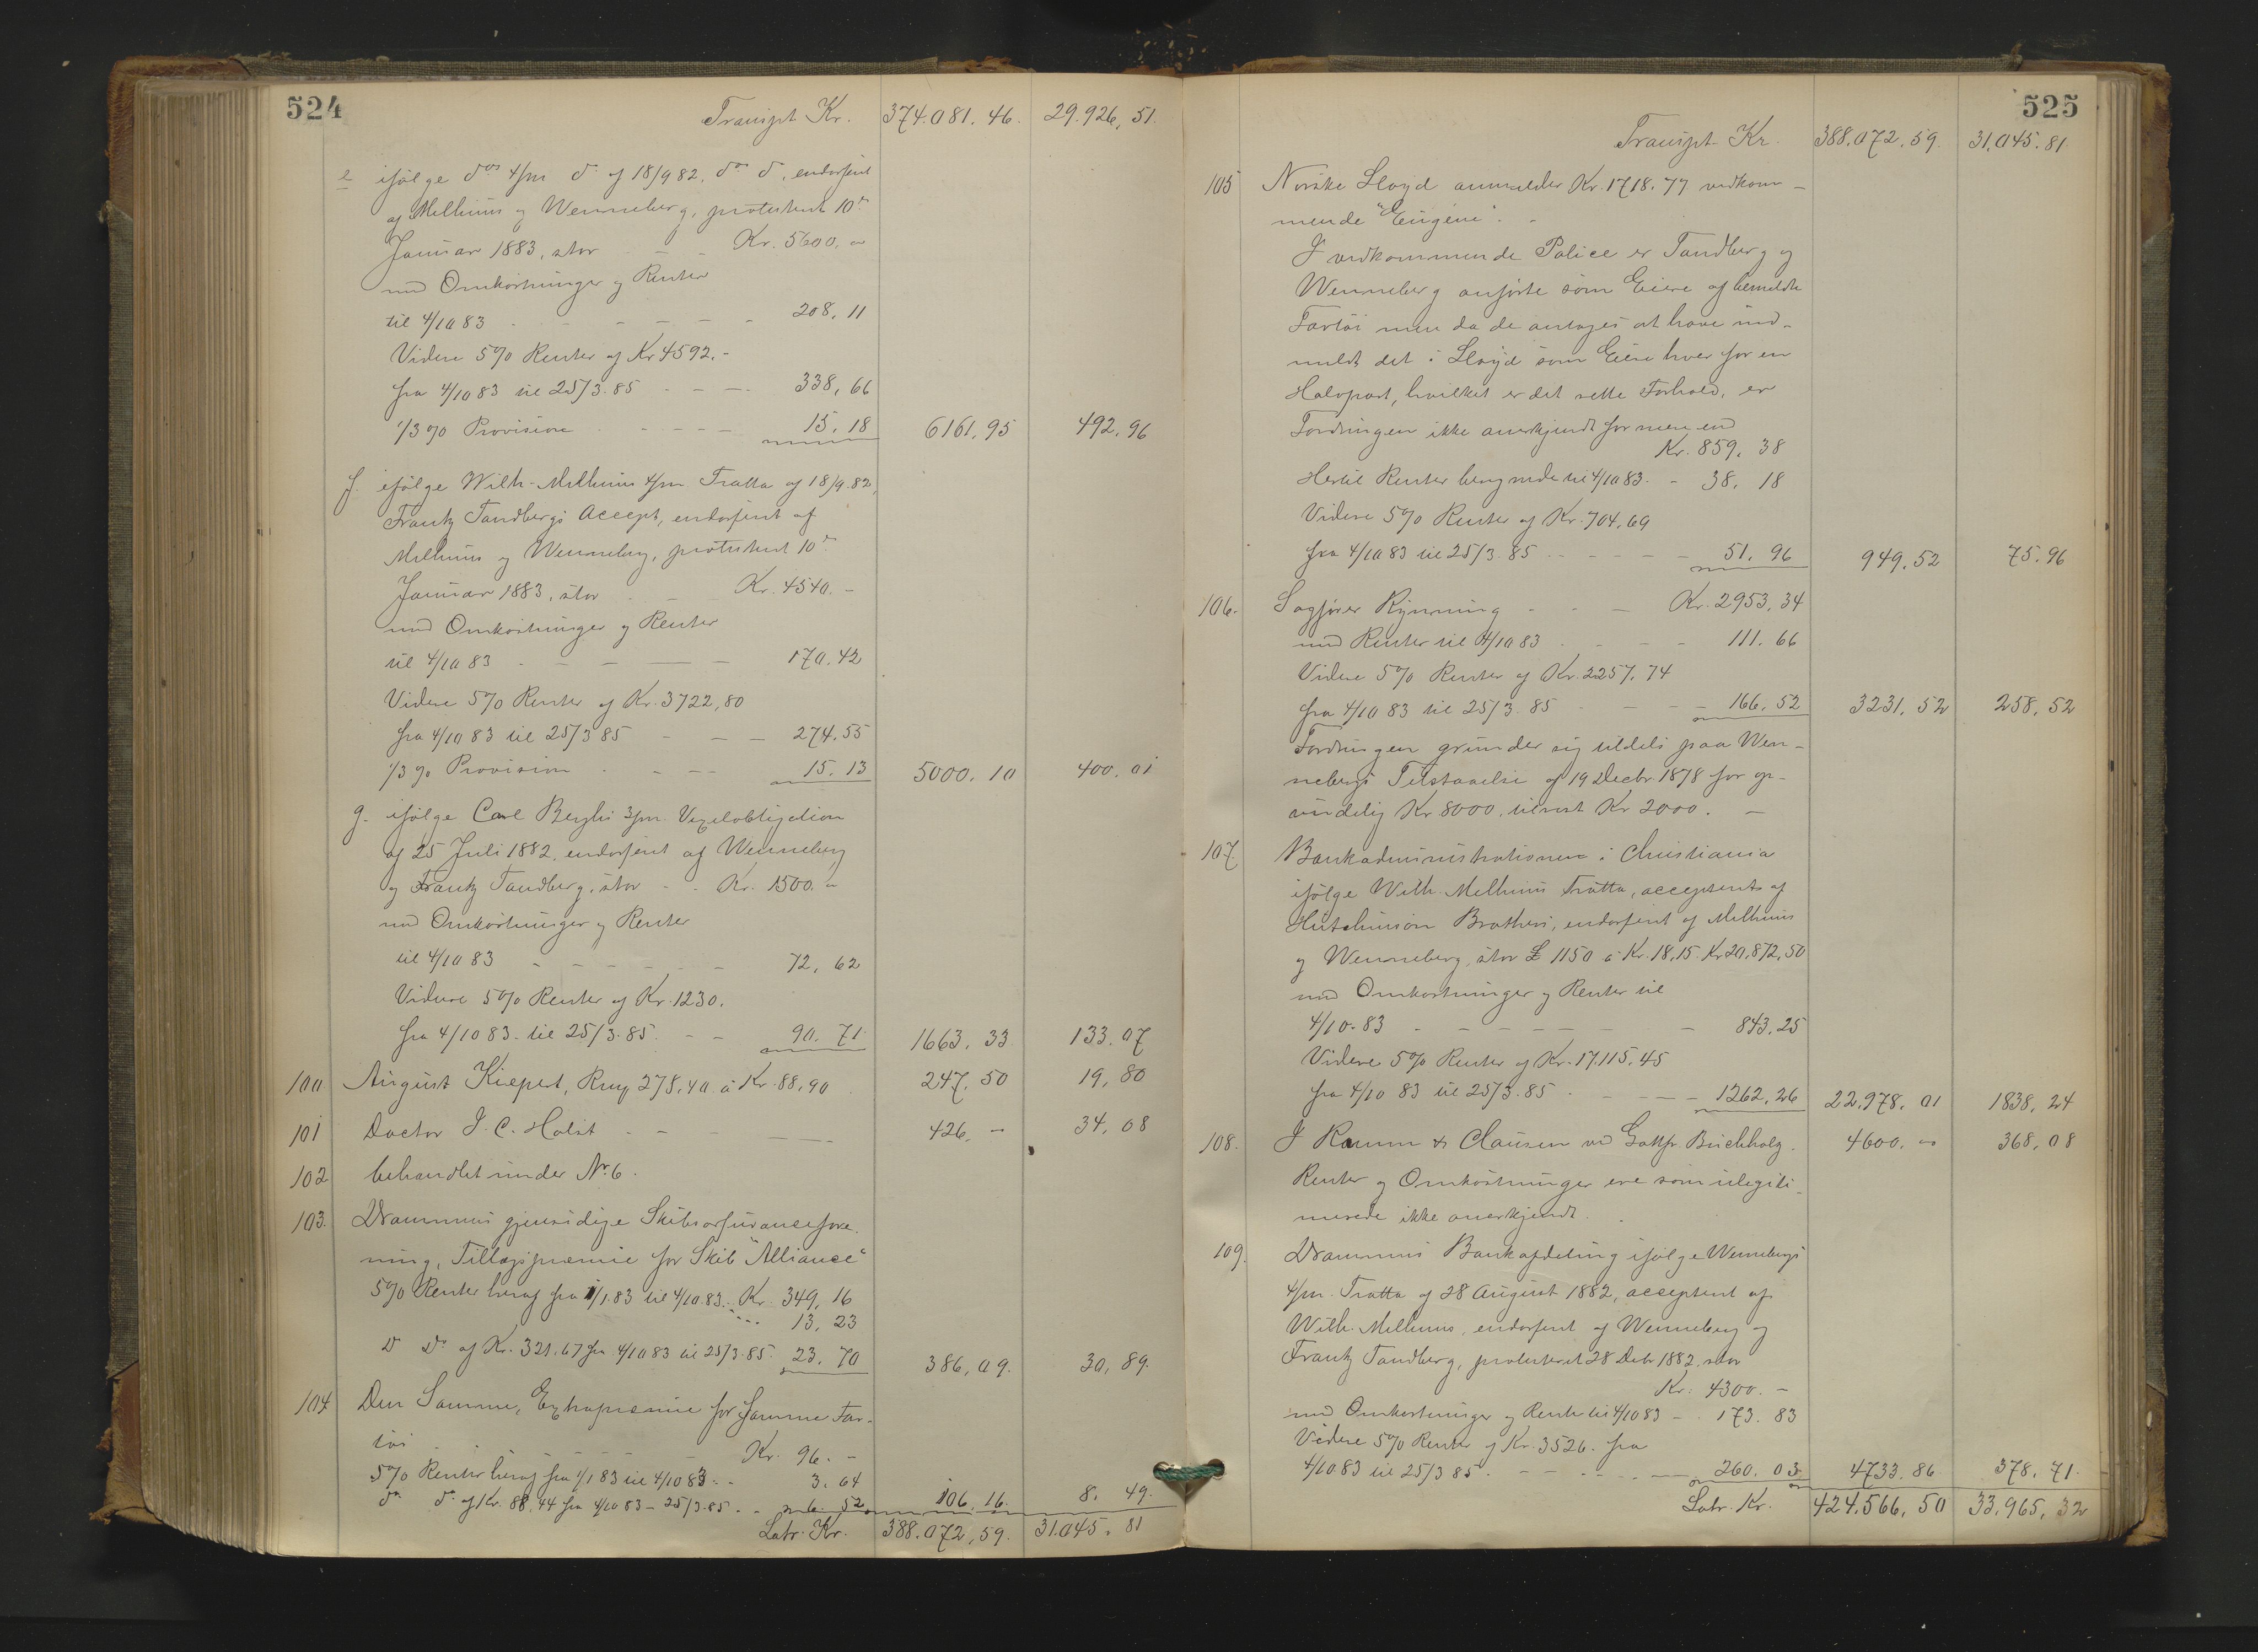 524
Transpt Kr. 374.081.46. 29.926,51.
e ifølge dos 4/m do af 18/9 82, do do, endosseret
af Melhuus og Wenneberg, protesteret 10de
Januar 1883, stor Kr. 5600.-
med Omkostninger og Renter
til 4/10 83 - - - - - 208,11
Videre 5% Renter af Kr 4592.-
fra 4/10 83 til 25/3.85 - - - 338,66
1/3% Provision - - - - 15.18 6161.95 492.96
f. ifølge Wilh. Melhuus 4/m Tratta af 18/9.82,
Frantz Tandbergs Accept, endosseret af
Melhuus og Wenneberg, protesteret 10de
Januar 1883, stor - - Kr. 4540.-
med Omkostninger og Renter
til 4/10 83 - - - - - 170.42
Videre 5% Renter af Kr. 3722,80
fra 4/10 83 til 25/3 85 - - - 274.55
1/3% Provision - - - 15.13 5000.10 400.01
g. ifølge Carl Berghs 3/m. Vexelobligation
af 25 Juli 1882, endosseret af Wenneberg
og Frantz Tandberg, stor - - Kr. 1500.-
med Omkostninger og Renter
til 4/10 83 - - - - - - 72,62
Videre 5% Renter af Kr. 1230.
fra 4/10 83. til 25/3.85. - - 90.71 1663.33 133.07
100 August Kiepert, Rmp 278.40 á Kr. 88,90 247.50 19,80
101 Doctor J. C. Holst - - - - 426.- 34,08
102 behandlet under No. 6.
103. Drammens gjensidige Skibsassurancefore-
ning, Tillægspræmie for Skib "Alliance"
5% Renter heraf fra 1/1.83 til 4/10.83 .. Kr. 349,16
13,23
Do Do af Kr. 321.67 fra 4/10 83 til 25/3.85. 23.70 386,09. 30,89.
104 Den Samme, Extrapræmie for samme Far-
tøi - - - - - Kr. 96.-
5% Renter heraf fra 1/1 83 til 4/10 83 .. - 3.64
do do af Kr. 88,44 fra 4/10 83 - 25/3.85. - 6.52 106.16. 8.49.
Latr. Kr. 388.072,59. 31.045.81
525
Transpt Kr. 388.072.59. 31.045.81.
105 Norske Lloyd anmelder Kr. 1718.77 vedkom-
mende "Eugénie". -
I vedkommende Police er Tandberg og
Wenneberg anførte som Eiere af bemeldte
Fartøi men da de antages at have ind-
meldt det i Lloyd som Eiere hver for en
Halvpart, hvilket er det rette Forhold, er
Fordringen ikke anerkjendt for mere end
Kr. 859.38
Hertil Renter beregnede til 4/10 83. - 38.18
Videre 5% Renter af Kr. 704.69
fra 4/10 83 til 25/3.85 - - - - 51.96 949.52 75.96
106. Sagfører Rynning - - - Kr. 2953.34
med Renter til 4/10 83 - - - 111.66
Videre 5% Renter af Kr. 2257.74
fra 4/10 83 til 25/3.85 - - - 166.52 3231.52 258,52
Fordringen grunder sig tildels paa Wen-
nebergs Tilstaaelse af 19 Decbr 1878 for op-
rindelig Kr 8000, tilrest Kr 2000. -
107. Bankadministrationen i Christiania
ifølge Wilh. Melhuus Tratta, acceptert af
Hutchinson Brothers, endosseret af Melhuus
og Wenneberg, stor £ 1150 á Kr. 18,15. Kr 20,872,50
med Omkostninger og Renter til
4/10.83 - - - - - - - 843.25
Videre 5% Renter af Kr. 17,115.45
fra 4/10 83 til 25/3.85 - - - 1262.26 22.978.01 1838.24
108. J Ramm & Clausen ved Gottfr Buchholz. 4600.- 368,08
Renter og Omkostninger ere som ulegiti-
merede ikke anerkjendt.
109. Drammens Bankafdeling ifølge Wennebergs
4/m. Tratta af 28 August 1882, acceptert af
Wilh. Melhuus, endosseret af Wenneberg og
Frantz Tandberg, protesteret 28 Decbr 1882, stor
Kr. 4300.-
med Omkostninger og Renter til 4/10 83 - . 173.83
Videre 5% Renter af Kr. 3526. fra
4/10.83 til 25/3 85. - - - - 260.03. 4733.86 378.71.
Latr. Kr. 424.566,50 33.965,32